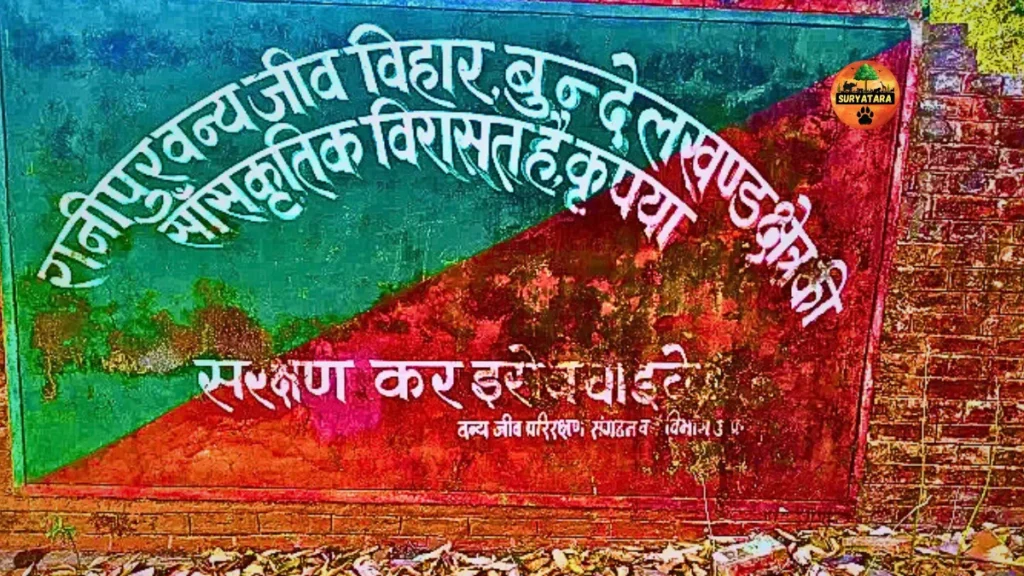 रानीपुर वन्य जीव विहार, बुन्देलखण्ड क्षेत्र की
साँसकृतिक विरासत है, कृपया
सरक्षण कर इसे
वन्य जीव परिरक्षण संगठन व विभाग उ प्र
SURYATARA